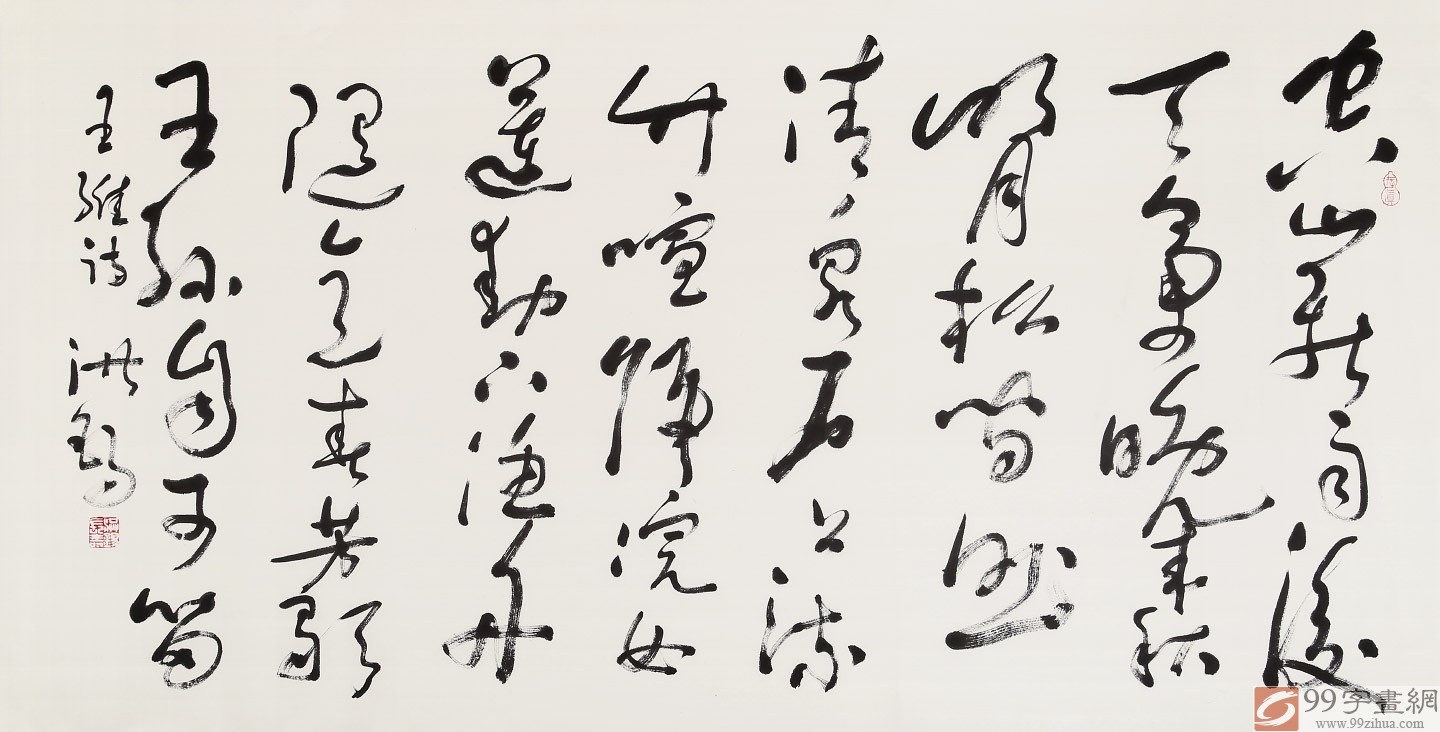 空山新雨後
天氣晚來秋
明月松間照
清泉石上流
竹喧歸浣女
蓮動下漁舟
隨意春芳歇
王孫自可留
王維詩 洪
99字畫網
www.99zihua.com